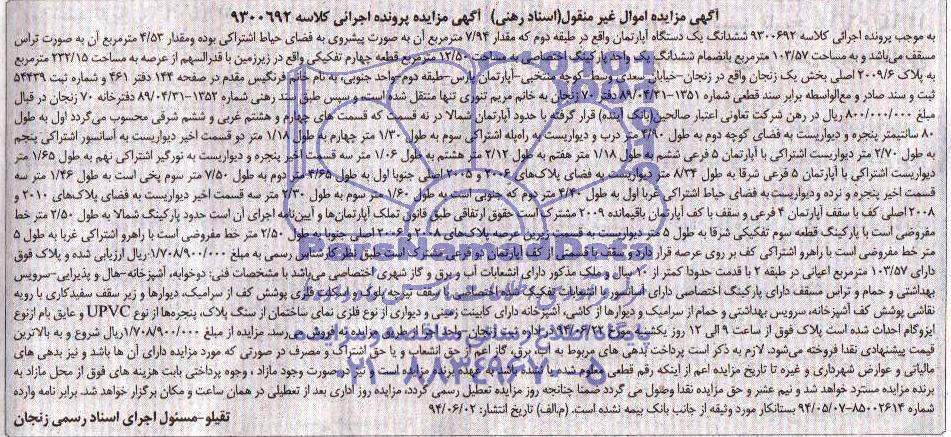 آگهی مزایده اموال غیر منقول(اسناد رهنی) آگهی مزایده پرونده اجرائی کلاسه ۹۳۰۰۶۹۲
به موجب پرونده اجرائی کلاسه ۹۳۰۰۶۹۲ ششدانگ یک دستگاه آپارتمان واقع در طبقه دوم که مقدار ۷/۹۴ مترمربع آن به صورت پیشروی به فضای حیاط اشتراکی بوده ومقدار ۴/۵۳ مترمربع آن به صورت تراس
مسقف می‌باشد و به مساحت ۱۰۳/۵۷ مترمربع بانضمام ششدانگ یک واحد پارکینگ اختصاصی به مساحت ۱۲/۵۰ مترمربع قطعه چهارم تفکیکی واقع در زیرزمین با قدرالسهم از عرصه به مساحت ۲۳۲/۱۵ مترمربع
به پلاک ۲۰۰۹/۶ اصلی بخش یک زنجان واقع در زنجان-خیابان سعدی وسط-کوچه منتخبی-آپارتمان پارس-طبقه دوم-واحد جنوبی به نام خانم فرنگیس مقدم در صفحه ۱۴۴ دفتر ۴۶۱ و شماره ثبت ۵۴۴۳۹
ثبت و سند صادر و مع‌الواسطه برابر سند قطعی شماره ۱۳۵۱-۸۹/۰۴/۳۱ دفتر ۷۰ زنجان به خانم مریم تنوری تنها منتقل شده است، و سپس طبق سند رهنی شماره ۱۳۵۲-۸۹/۰۴/۳۱ دفترخانه ۷۰ زنجان در قبال
مبلغ ۸۰۰/۰۰۰/۰۰۰ ریال در رهن شرکت تعاونی اعتبار صالحین(بانک آینده) قرار گرفته با حدود آپارتمان شمالا در نه قسمت که قسمت های چهارم و هشتم غربی و ششم شرقی محسوب می‌گردد اول به طول
۸۰ سانتیمتر پنجره و دیواریست به فضای کوچه دوم به طول ۴/۹۰ متر درب و دیواریست به راه‌پله اشتراکی سوم به طول ۱/۳۰ متر چهارم به طول ۱/۱۸ متر دو قسمت اخیر دیواریست به آسانسور اشتراکی پنجم
به طول ۲/۷۰ متر دیواریست اشتراکی با آپارتمان ۵ فرعی ششم به طول ۱/۱۸ متر هفتم به طول ۲/۱۲ متر هشتم به طول ۱/۰۶ متر سه قسمت اخیر پنجره و دیواریست به نورگیر اشتراکی نهم به طول ۱/۶۵ متر
دیواریست اشتراکی با آپارتمان ۵ فرعی شرقا به طول ۸/۳۴ متر دیواریست به فضای پلاک‌های ۲۰۰۶ و ۲۰۰۵ اصلی جنوبا اول به طول ۴/۶۵ متر دوم به طول ۷/۵۰ متر سوم پخی است به طول ۱/۴۶ متر سه
قسمت اخیر پنجره و نرده و دیواریست به فضای حیاط اشتراکی غربا اول به طول ۴/۴۰ متر دوم که جنوبی است به طول ۱/۶۰ متر سوم به طول ۴/۳۰ متر سه قسمت اخیر دیواریست به فضای پلاک‌های ۲۰۱۰ و
۲۰۰۸ اصلی کف با سقف آپارتمان ۴ فرعی و سقف با کف آپارتمان باقیمانده ۲۰۰۹ مشترک است حقوق ارتفاقی طبق قانون تملک آپارتمان‌ها و آیین‌نامه اجرای آن است حدود پارکینگ شمالا به طول ۲/۵۰ متر خط
مفروضی است با پارکینگ قطعه سوم تفکیکی شرقا به طول ۵ متر دیواریست به قسمت زیرین عرصه پلاک‌های ۲۰۰۸ و ۲۰۰۶ اصلی جنوبا به طول ۲/۵۰ متر خط مفروضی است با راهرو اشتراکی غربا به طول ۵
متر خط مفروضی است با راهرو اشتراکی کف بر روی عرصه قرار دارد و سقف با قسمتی از کف آپارتمان دو فرعی مشترک است طبق نظر کارشناس رسمی به مبلغ ۱/۷۰۸/۹۰۰/۰۰۰ریال ارزیابی شده و پلاک فوق
دارای ۱۰۳/۵۷ مترمربع اعیانی در طبقه ۲ با قدمت حدودا کمتر از ۱۰ سال و ملک مذکور دارای انشعابات آب و برق و گاز شهری اختصاصی می‌باشد با مشخصات فنی: دوخوابه، آشپزخانه-هال و پذیرایی-سرویس
بهداشتی و حمام و تراس مسقف دارای پارکینگ اختصاصی دارای آسانسور و انشعابات تفکیک شده اختصاصی با سقف تیرچه بلوک و اسکلت فلزی پوشش کف از سرامیک، دیوارها و زیر سقف سفیدکاری با رویه
نقاشی پوشش کف آشپزخانه، سرویس بهداشتی و حمام از سرامیک و دیوارها از کاشی، آشپزخانه دارای کابینت زمینی و دیواری از نوع فلزی نمای ساختمان از سنگ پلاک، پنجره‌ها از نوع UPVC و عایق بام ازنوع
ایزوگام احداث شده است پلاک فوق از ساعت ۹ الی ۱۲ روز یکشنبه مورخ ۹۴/۰۶/۲۲ در اداره ثبت زنجان-واحد اجرا از طریق مزایده به فروش می‌رسد. مزایده از مبلغ ۱/۷۰۸/۹۰۰/۰۰۰ریال شروع و به بالاترین
قیمت پیشنهادی نقدا فروخته می‌شود. لازم به ذکر است پرداخت بدهی های مربوط به آب، برق، گاز اعم از حق انشعاب و یا حق اشتراک و مصرف در صورتی که مورد مزایده دارای آن ها باشد و نیز بدهی های
مالیاتی و عوارض شهرداری و غیره تا تاریخ مزایده اعم از اینکه رقم قطعی معلوم شده یا نشده باشد به عهده برنده مزایده است و نیز در صورت وجود مازاد، وجوه پرداختی بابت هزینه های فوق از محل مازاد به
برنده مزایده مسترد خواهد شد و نیم عشر و حق مزایده نقدا وصول می گردد ضمنا چنانچه روز مزایده تعطیل رسمی گردد، مزایده روز اداری بعد از تعطیلی در همان ساعت و مکان برگزار خواهد شد. برابر نامه وارده
شماره ۸۵۰۰۲۶۱۴-۹۴/۰۵/۰۷ بستانکار مورد وثیقه از جانب بانک بیمه نشده است. (م‌الف) تاریخ انتشار: ۹۴/۰۶/۰۲
تقیلو-مسئول اجرای اسناد رسمی زنجان
ParsNamadData
پایگاه اطلاع رسانی مناقصه و مزایده